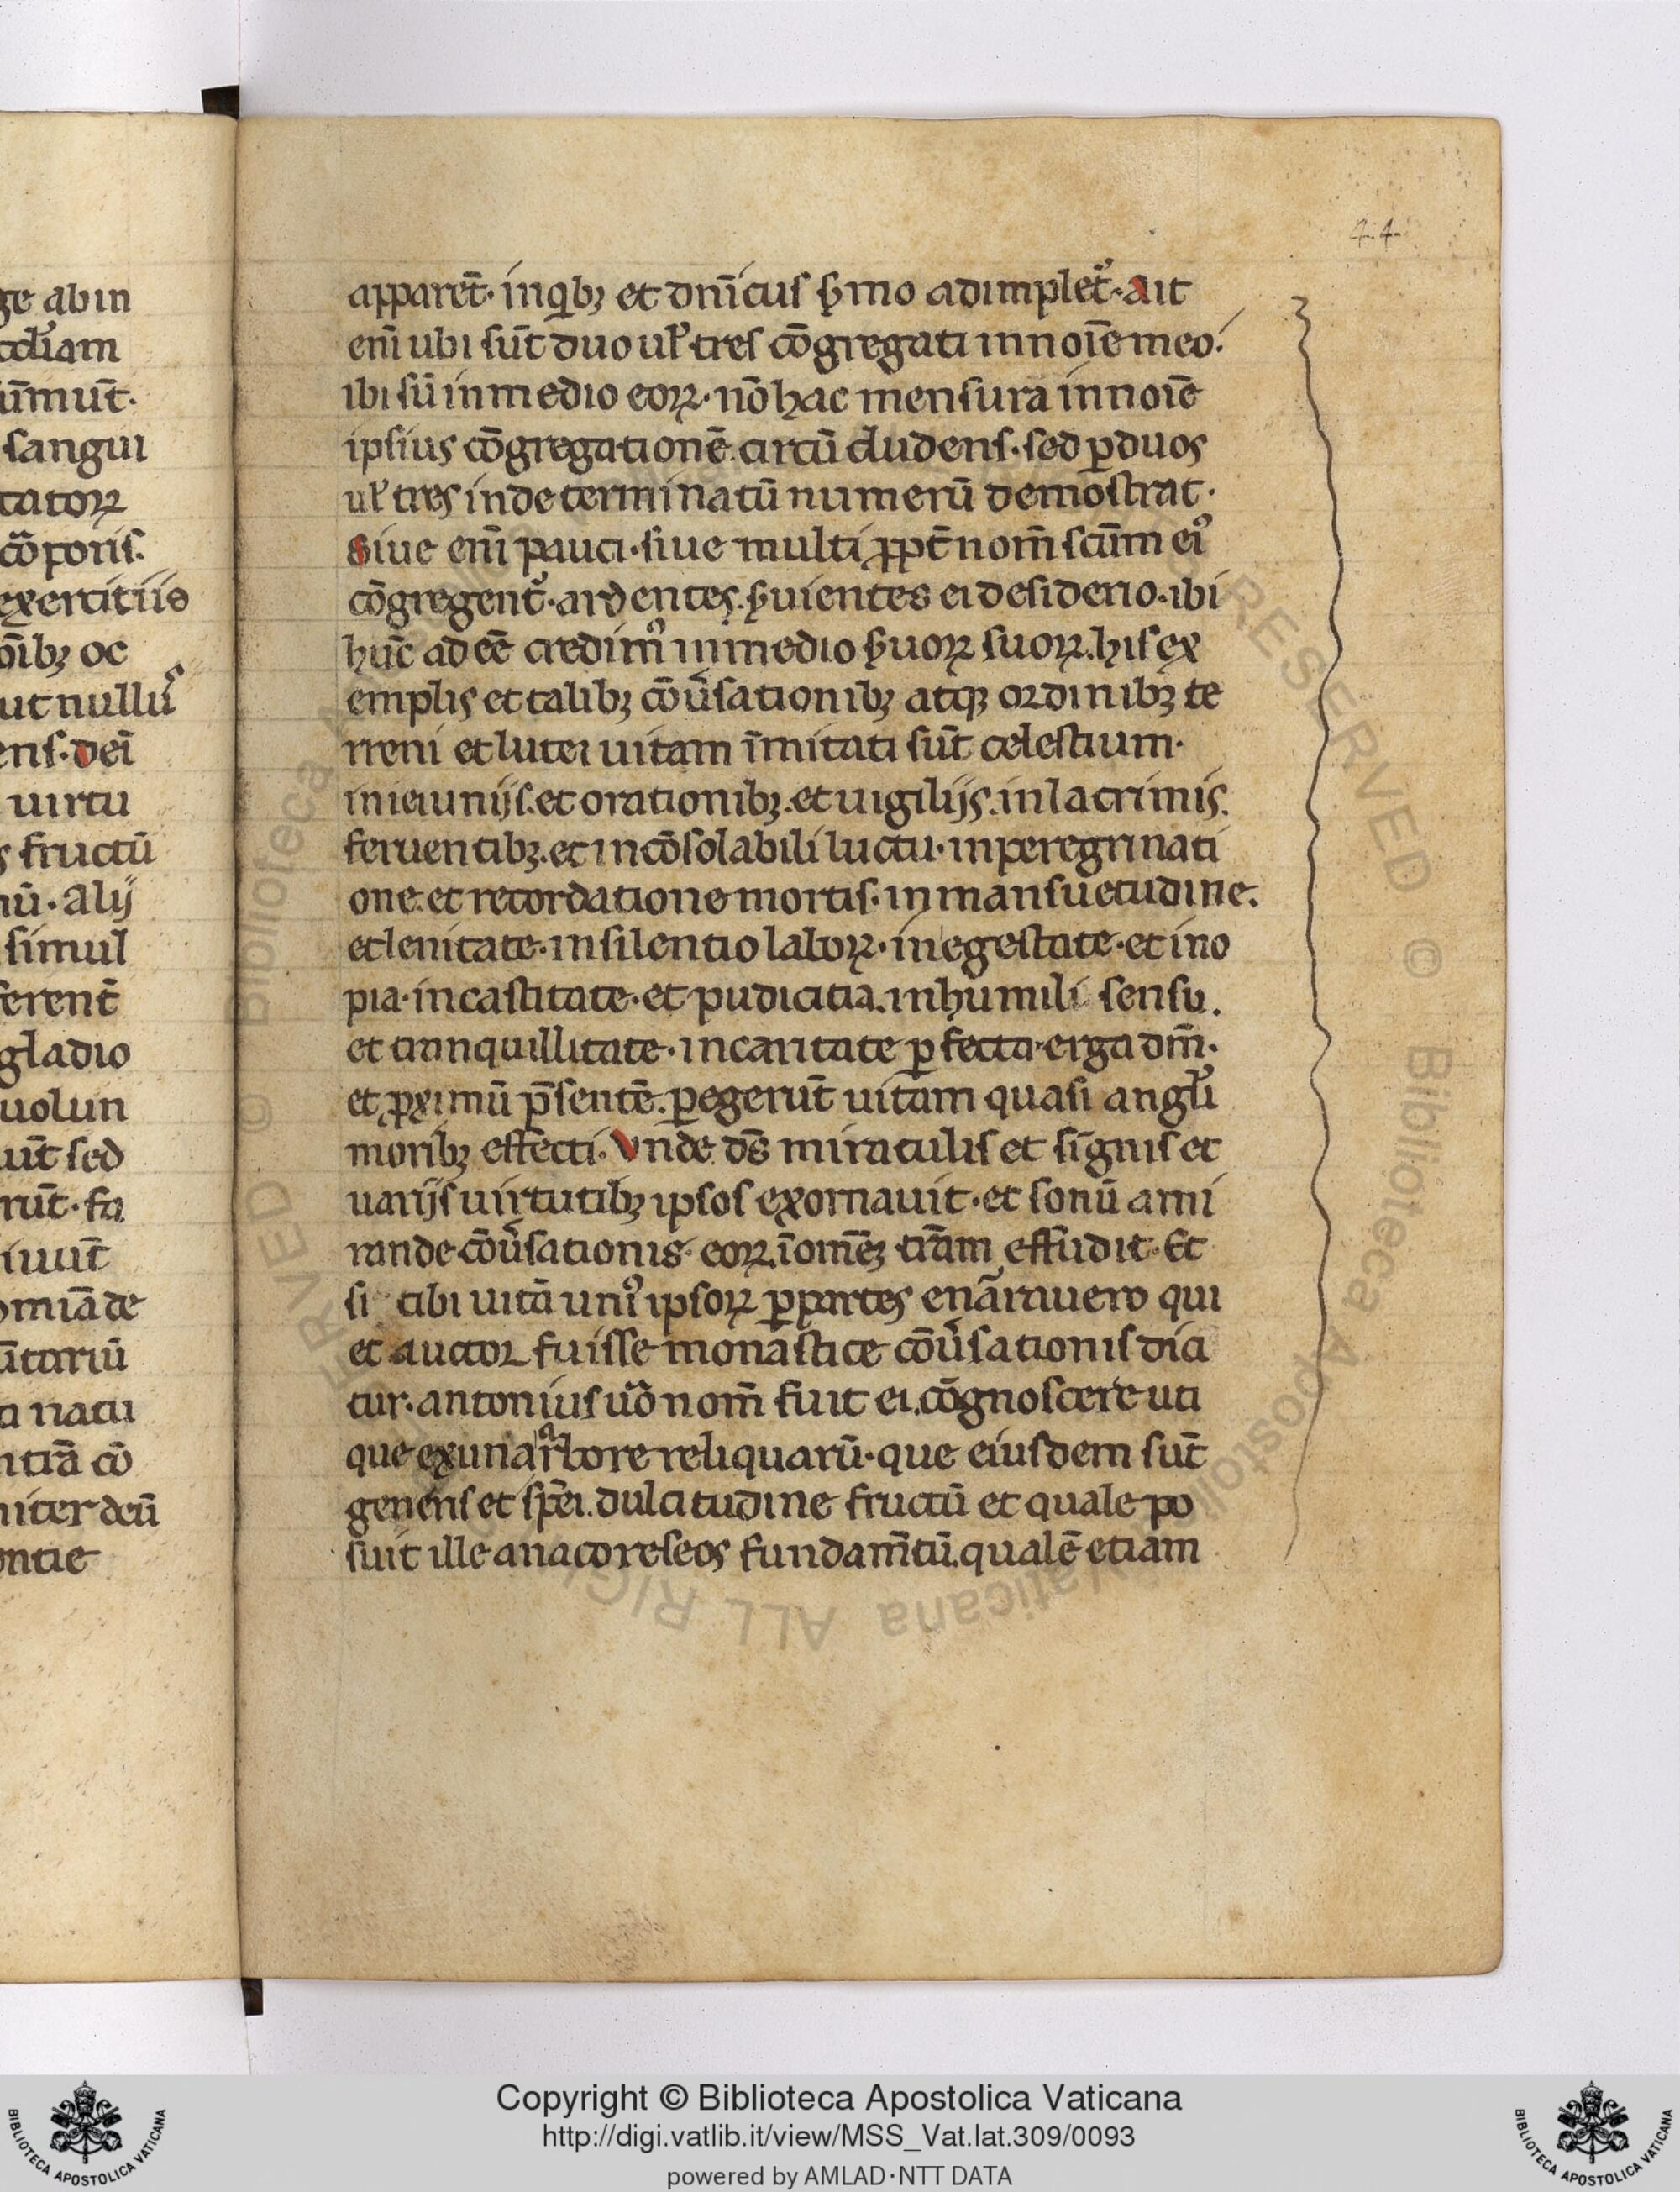 ge ab in
um̄ut̄.
sangui
tatoꝝ
cōporis.
exercitiis
oc
ut nullus
ens. dei
uirtu
fructū
nū. alij
simul
ferent̄
gladio
uolun
ut̄ sed
rut̄. fa
iuut̄
omiā de
tariū
a natu
ntiā cō
niter deū
ontie
44
apparet̄. in qⁱbꝫ et dn̄icus ẜmo adimplet᷒. Ait
eni̅ ubi sut̄ duo ul̛ tres cōgregati in noīe meo.
ibi sū in medio eoꝝ. nō hac mensura in noīe
ipsius cōgregationē circū cludens. sed ꝑ duos
ul̛ tres indeterminatū numerū demōstrat.
Siue eni̅ pauci. siue multi ꝓpt̄ nom̄ scm̄ eiꝰ
cōgregent᷒. ardentes. ẜuientes ei desiderio. ibi
hūc adeē credimꝰ in medio ẜuoꝝ suoꝝ. his ex
emplis et talibꝫ cōu̓sationibꝫ atqꝫ ordinibꝫ te
rreni et lutei uitam īmitati sut̄ celestium.
in ieiunijs. et orationibꝫ. et uigilijs. in lacrimis.
feruentibꝫ. et incōsolabili luctu. in peregrinati
one. et recordatione mortis. in mansuetudine.
et lenitate. in silentio laboꝝ. in egestate. et ino
pia. in castitate. et pudicitia. in humili sensu.
et tranquillitate. in caritate ꝑfecta. erga dm̄.
et ꝓximū p̄sentē. ꝑegerut̄ uitam quasi angl̛i
moribꝫ effecti. Unde ds̄ miraculis et signis et
uarijs uirtutibꝫ ipsos exornauit. et sonū ami
rande cōu̓sationis eoꝝ ī om̄eꝫ trām effudit. Et
si tibi uitā unꝰ ipsoꝝ ꝑ partes enārauero qui
et auctor fuisse monastice cōu̓sationis dici
tur. antonius uo̊ nom̄ fuit ei. cōgnoscere uti
que ex una arbore reliquarū. que eiusdem sut̄
generis et sp̄ei. dulcitudine fructū et quale po
suit ille anacoreseos fundam̄tū. qualē etiam
Copyright © Biblioteca Apostolica Vaticana
http://digi.vatlib.it/view/MSS_Vat.lat.309/0093
powered by AMLAD·NTT DATA
BIBLIOTECA APOSTOLICA VATICANA
BIBLIOTECA APOSTOLICA VATICANA